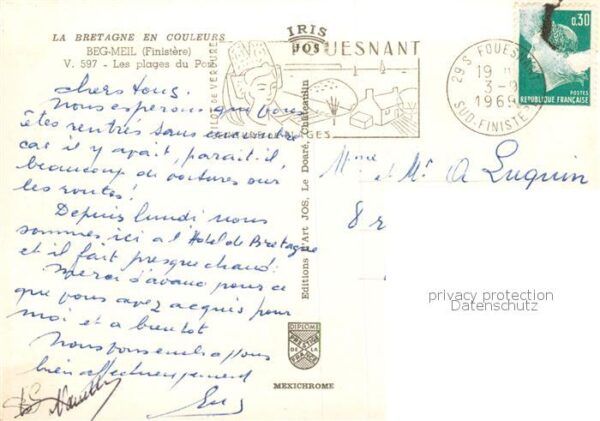 LA BRETAGNE EN COULEURS
BEG-MEIL (Finistère)
V. 597 - Les plages du
IRIS
JOS
FOUESNANT
29 S. FOUESNANT
19 H
3-9
1969
SUD-FINISTERE
0,30
POSTES
REPUBLIQUE FRANÇAISE
chers tous.
Nous espérons que vous
êtes rentrés sans
car il y avait, parait-il,
beaucoup de voitures sur
les routes!
Depuis lundi nous
sommes ici a l'Hotel de Bretagne
et il fait presque chaud.
Merci d'avance pour ce
que vous avez acquis pour
moi et a bientot
Nous vous embrassons
bien affectueusement
Mme et Mr A Luquin
8 r
Editions d'Art JOS, Le Doaré, Chateaulin
DIPLOME
PRESTIGE
DE LA
FRANCE
MEXICHROME
privacy protection
Datenschutz